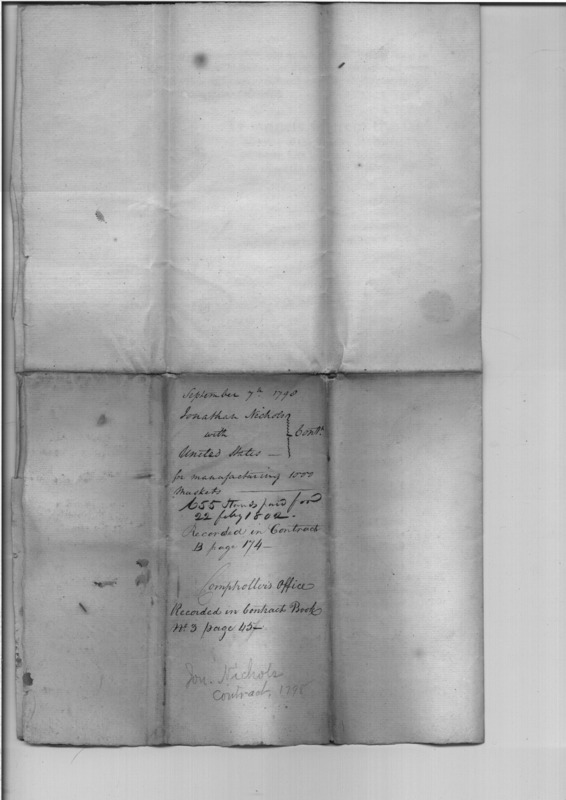 September 7th 1798
Jonathan Nichols
with
United States
Contt
for manufacturing 1000
muskets
655 Stands paid for
22 feby 1802.
Recorded in Contract
B page 174
Comptrollers Office
Recorded in Contract Book
No 3 page 45
Jon. Nichols
Contract 1798